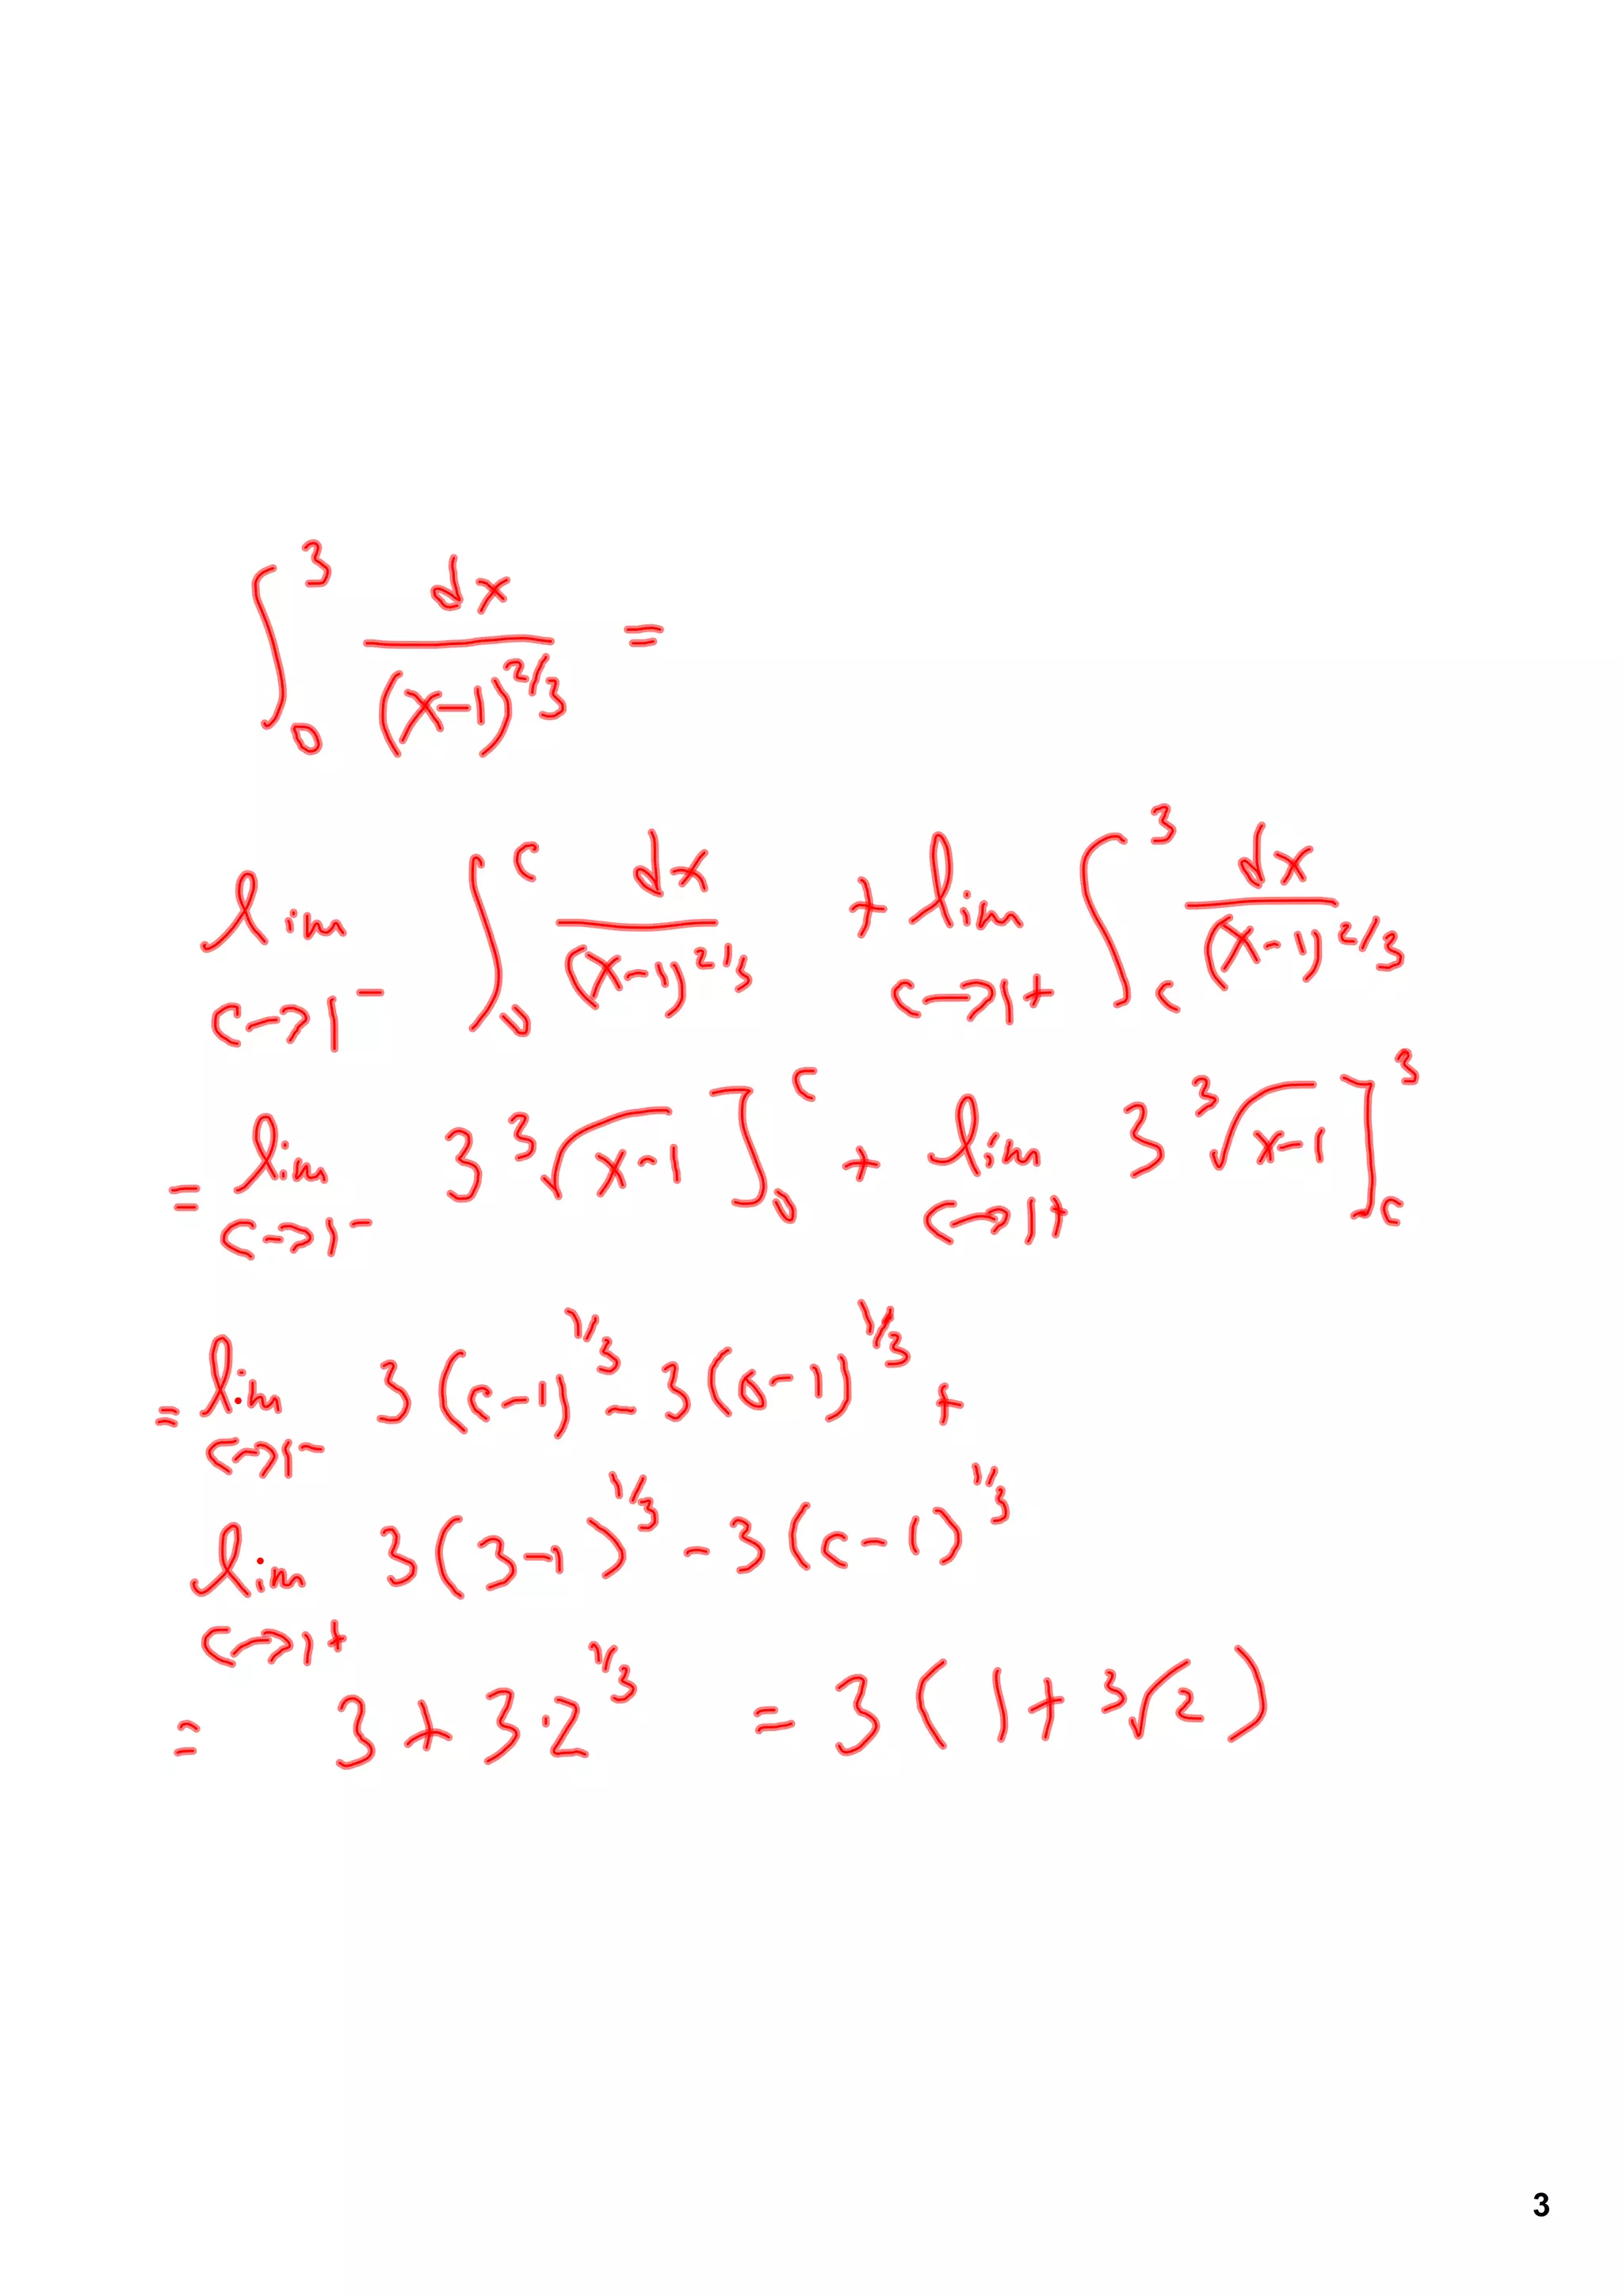 ∫₀³ dx/(x-1)^2/3 =
lim c→1⁻ ∫₀^c dx/(x-1)^2/3 + lim c→1⁺ ∫_c³ dx/(x-1)^2/3
= lim c→1⁻ 3 ∛(x-1) ]₀^c + lim c→1⁺ 3 ∛(x-1) ]_c³
= lim c→1⁻ 3(c-1)^1/3 - 3(0-1)^1/3 +
lim c→1⁺ 3(3-1)^1/3 - 3(c-1)^1/3
= 3 + 3·2^1/3 = 3(1+∛2)
3